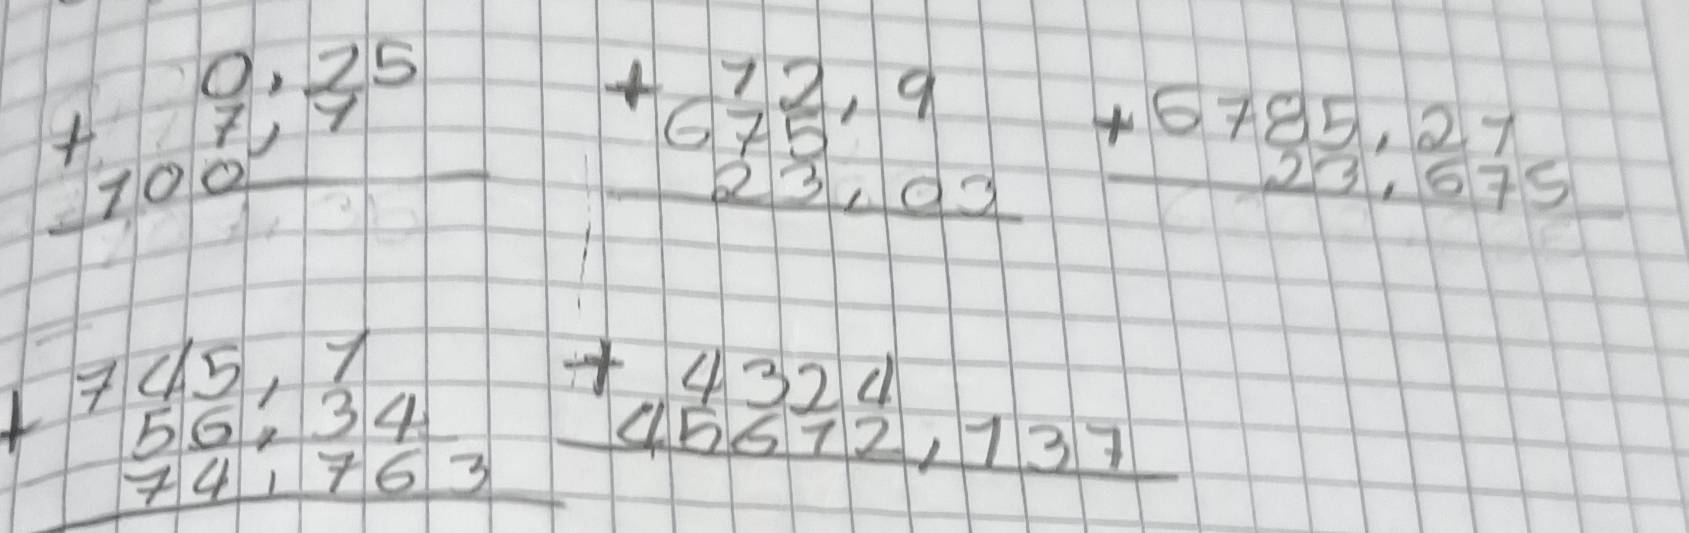 0,25
+ 7,1
100
+ 12,9
675
23,03
+ 6785,21
23,675
745,1
+ 56,34
74,763
+ 4324
45612,137